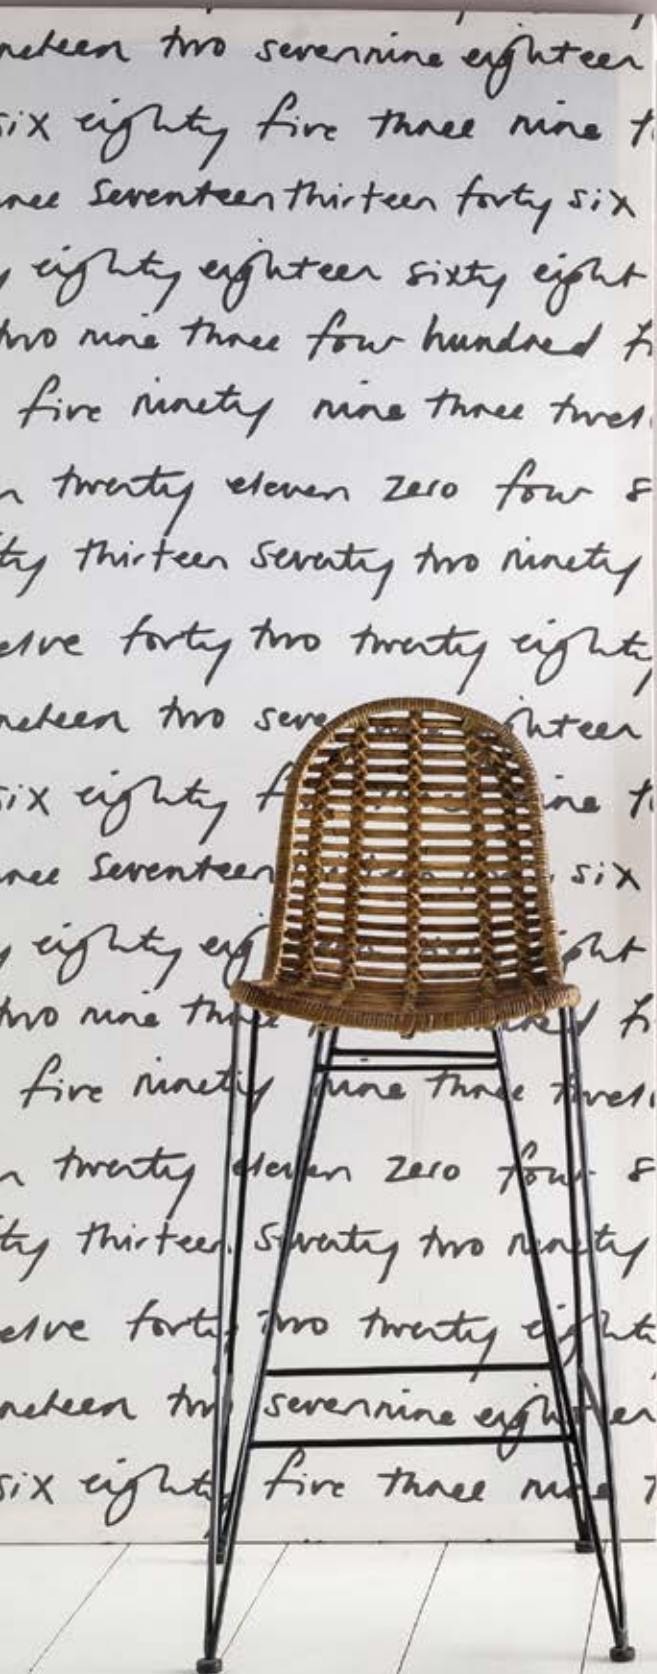 neteen two sevennine eighteen
six eighty five three nine t
ree seventeen thirteen forty six
y eighty eighteen sixty eight
two nine three four hundred fi
five ninety nine three twel
n twenty eleven zero four s
ty thirteen seventy two ninety
elve forty two twenty eighty
neteen two seve hteen
six eighty f ine t
ree seventeen six
y eighty eig ght
two nine three fi
five ninety nine three twel
n twenty eleven zero four s
ty thirteen seventy two ninety
elve forty two twenty eighty
neteen two sevennine eighteen
six eighty five three nine t